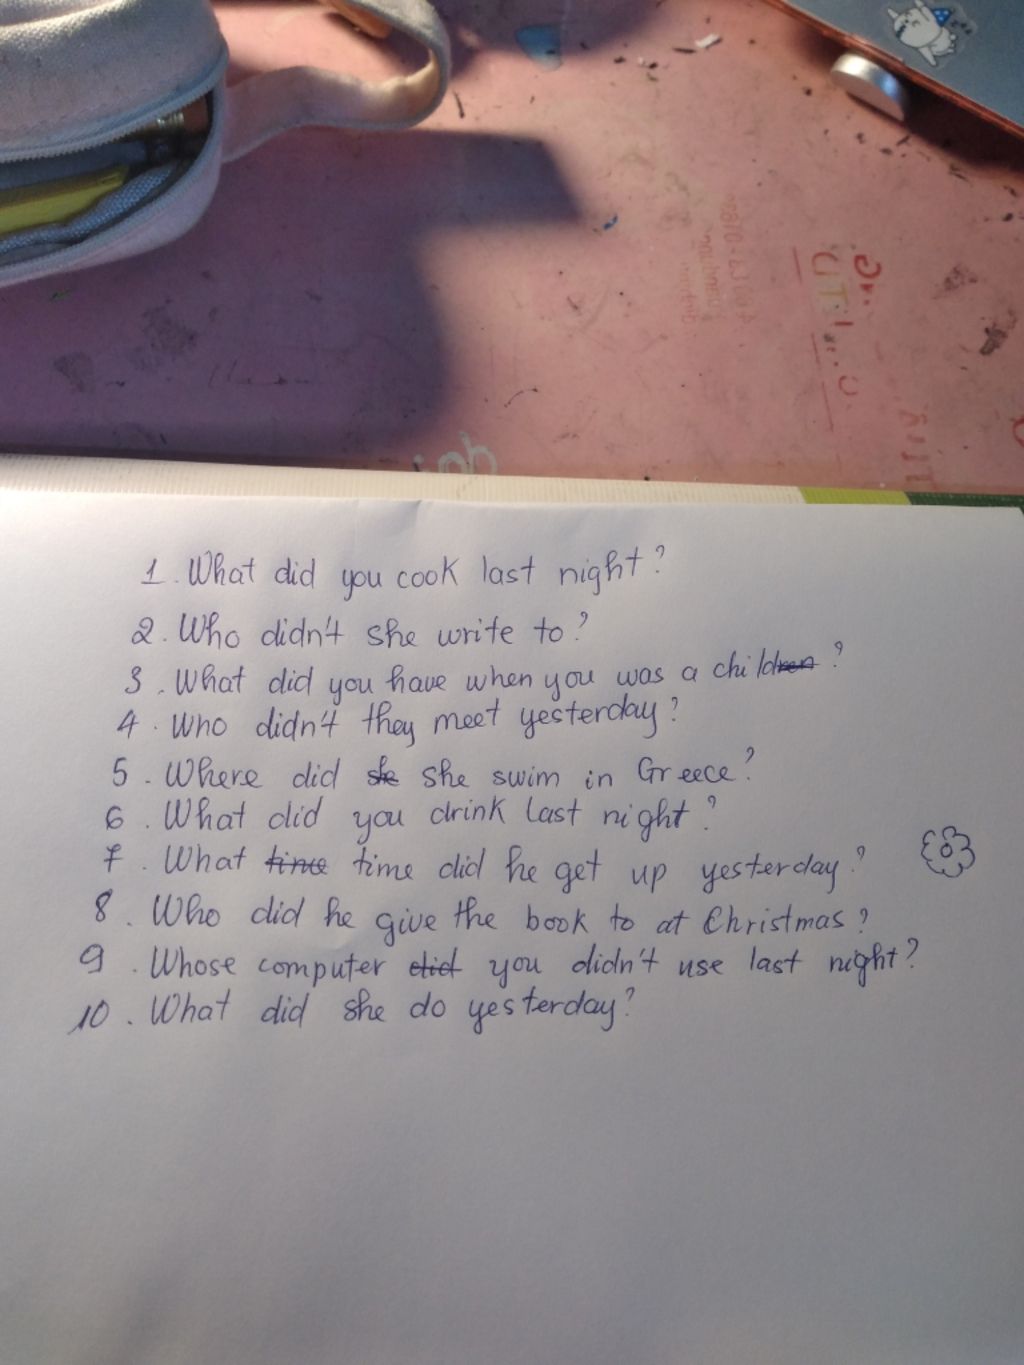 1. What did you cook last night?
2. Who didn't she write to?
3. What did you have when you was a child?
4. Who didn't they meet yesterday?
5. Where did she swim in Greece?
6. What did you drink last night?
7. What time did he get up yesterday?
8. Who did he give the book to at Christmas?
9. Whose computer you didn't use last night?
10. What did she do yesterday?